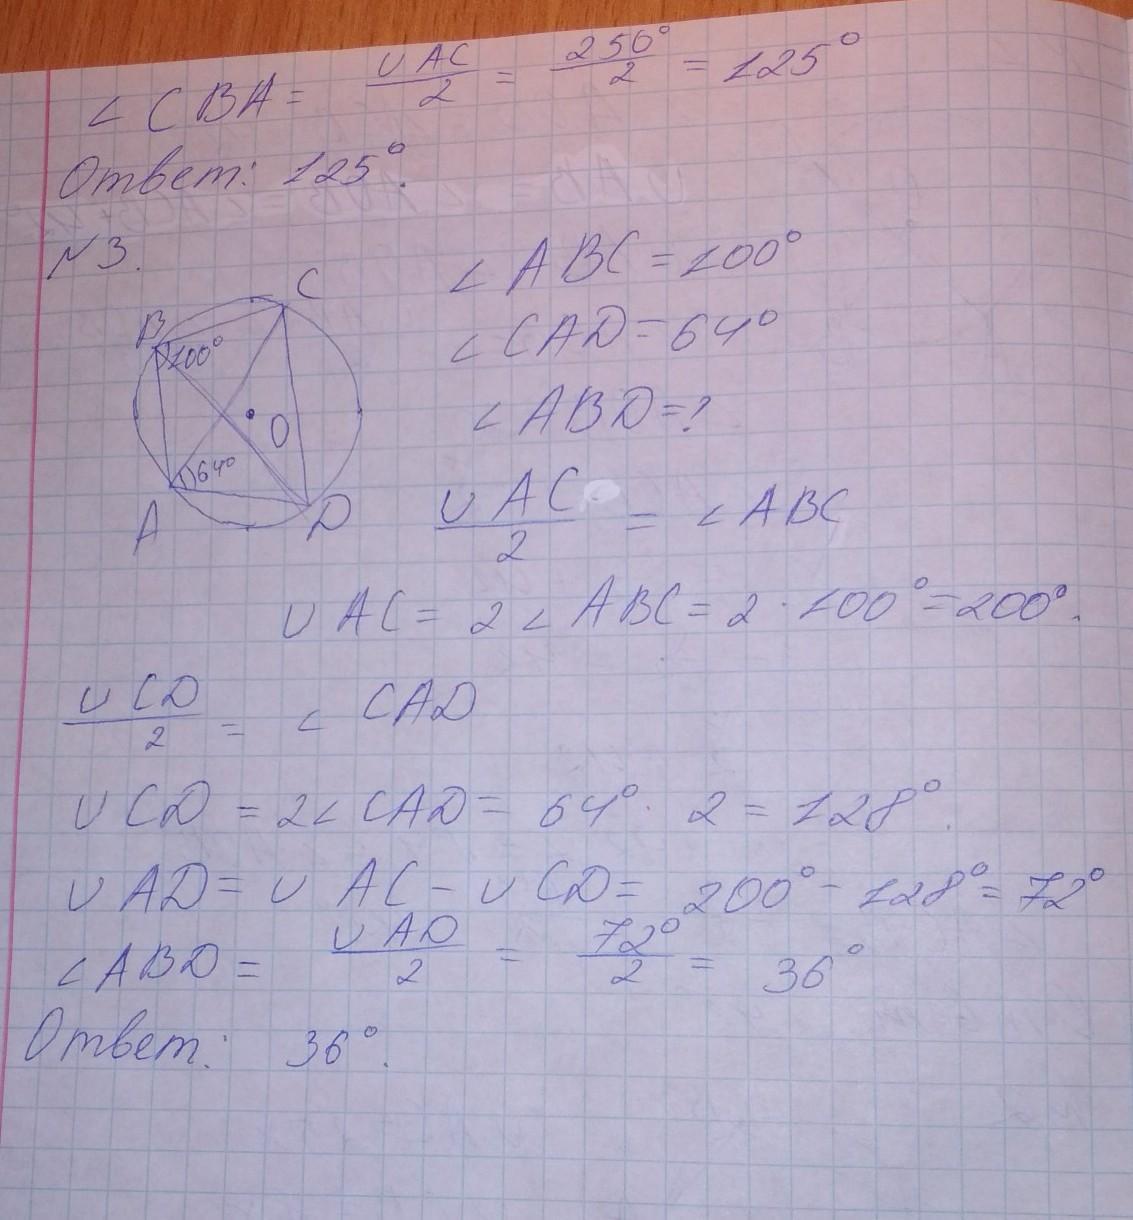 ∠ CBA = ∪AC/2 = 250°/2 = 125°
Ответ: 125°.
N3.
∠ ABC = 100°
∠ CAD = 64°
∠ ABD = ?
C
B
100°
O
64°
A
D
∪AC/2 = ∠ ABC
∪ AC = 2∠ ABC = 2 · 100° = 200°.
∪CD/2 = ∠ CAD
∪ CD = 2∠ CAD = 64° · 2 = 128°.
∪ AD = ∪ AC - ∪ CD = 200° - 128° = 72°
∠ ABD = ∪AD/2 = 72°/2 = 36°
Ответ: 36°.